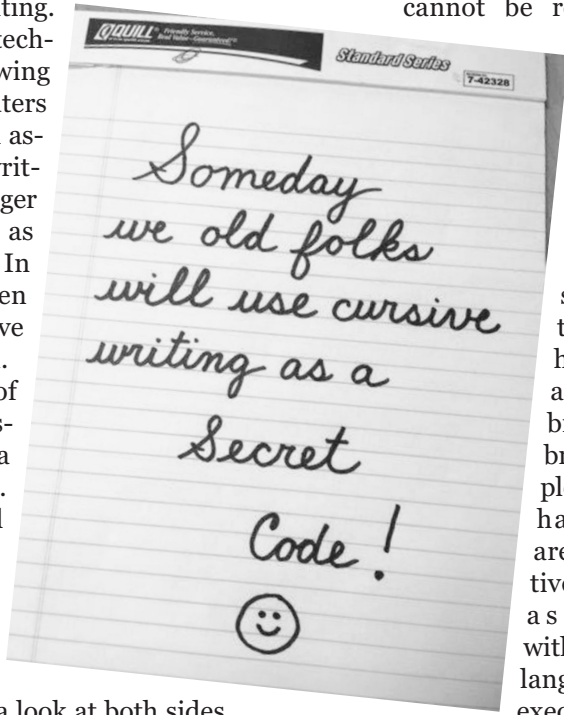 ting.
tech-
wing
ters
as-
writ-
ger
as
In
en
ve
of
s-
a
cannot be re
QUILL
Friendly Service,
Real Value - Guaranteed!
Standard Series
7-42328
Someday
we old folks
will use cursive
writing as a
Secret
Code!
a look at both sides
s
t
h
a
br
br
ple
ha
are
tive
as
with
lang
exec